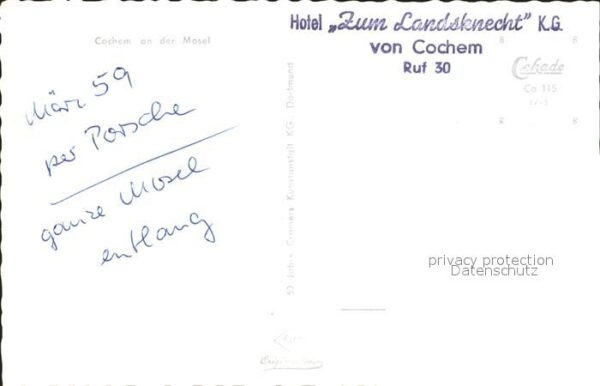 Cochem an der Mosel
Hotel „Zum Landsknecht" K.G.
von Cochem
Ruf 30
Cekade
Co 115
März 59
per Porsche
ganze Mosel
entlang
50 Jahre Cramers Kunstanstalt KG. Dortmund
privacy protection
Datenschutz